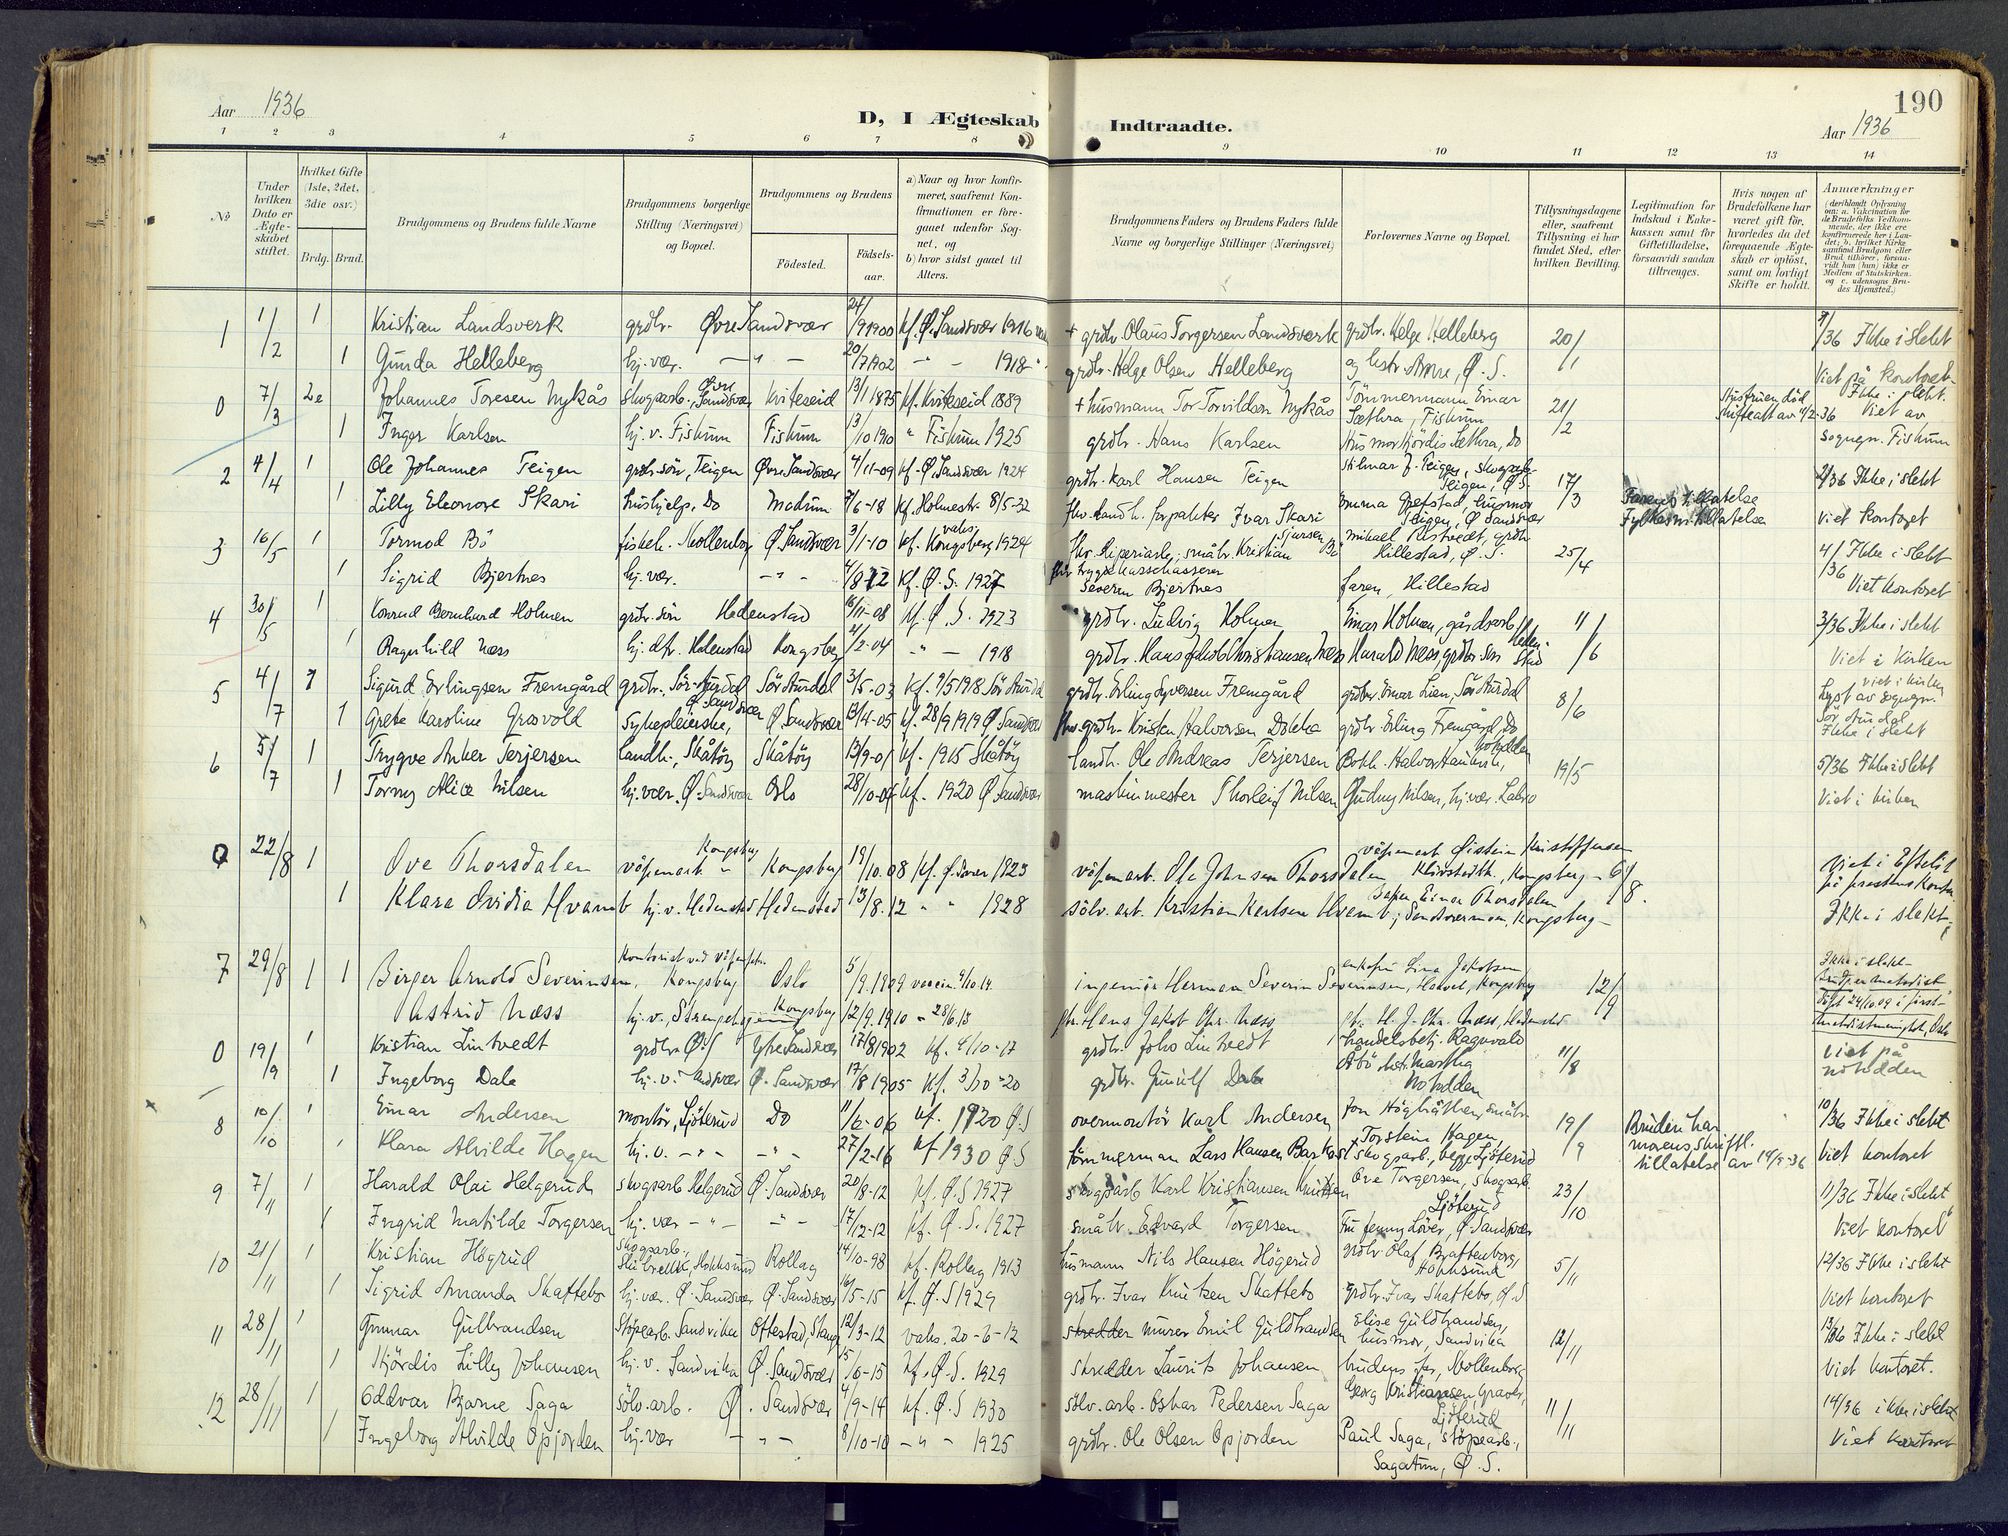 190
Aar 1936
D, I Ægteskab Indtraadte.
Aar 1936
1 2 3 4 5 6 7 8 9 10 11 12 13 14
№
Under hvilken Dato er Ægteskabet stiftet.
Hvilket Gifte (1ste, 2det, 3die osv.)
Brdg. Brud.
Brudgommens og Brudens fulde Navne
Brudgommens borgerlige Stilling (Næringsvei) og Bopæl.
Brudgommens og Brudens
Fødested.
Fødselsaar.
a) Naar og hvor konfirmeret, saafremt Konfirmationen er foregaaet udenfor Sognet, og
b) hvor sidst gaaet til Alters.
Brudgommens Faders og Brudens Faders fulde Navne og borgerlige Stillinger (Næringsvei)
Forlovernes Navne og Bopæl.
Tillysningsdagene eller, saafremt Tillysning ei har fundet Sted, efter hvilken Bevilling.
Legitimation for Indskud i Enkekassen samt for Giftetilladelse, forsaavidt saadan tiltrænges.
Hvis nogen af Brudefolkene har været gift før, hvorledes da det foregaaende Ægteskab er opløst, samt om lovligt Skifte er holdt.
Anmærkninger (deriblandt Oplysning om: a. Vakcination for de Brudefolks Vedkommende, der ikke ere konfirmerede her i Landet; b. hvilket Kirkesamfund Brudgom eller Brud tilhører, forsaavidt han (hun) ikke er Medlem af Statskirken, og c. udensogns Brudes Hjemsted.)
1 1/2 1 Kristian Landsverk grdbr. Øvre Sandsvær 24/9 1900 kf. Ø. Sandsvær 1916 + grdbr. Olaus Torgersen Landsverk grdbr. Helge Helleberg 20/1 /36 Ikke i slekt
1 Gunda Helleberg hj. vær. — " — 20/7 1902 — " — 1918 grdbr. Helge Olsen Helleberg Ø. S. Viet på kontoret
0 7/3 2e Johannes Toresen Nykås Skogsarb., Øvre Sandsvær Kviteseid 13/1 1875 kf. Kviteseid 1889 + husmann Tor Torvildsen Nykås Tømmermann Einar Sæthra, Fiskum 21/2 Hustruen død Ikke i slekt. Viet av
1 Inger Karlsen hj. v. Fiskum Fiskum 13/10 1910 " Fiskum 1925 grdbr. Hans Karlsen Husmor Hjørdis Sæthra, Do sognepr. Fiskum
2 4/4 1 Ole Johannes Teigen grdbr.søn, Teigen Øvre Sandsvær 4/11-09 kf. Ø. Sandsvær 1924 grdbr. Karl Hansen Teigen Hilmar J. Teigen, skogsarb. Teigen, Ø. S. 17/3 2/36 Ikke i slekt
1 Lilly Eleonore Skari hushjelp, Do Modum 7/6-18 kf. Holmestr. 8/5-32 fhv. landh. forpakter Ivar Skari Emma Grefstad, husmor Teigen, Ø. Sandsvær Farens tillatelse Fylkesm. tillatelse Viet kontoret
3 16/5 1 Tormod Bø fiskeh. Mollenborg Ø. Sandsvær 3/1-10 kf. Kongsberg 1924 Kristian Bø Hillestad, Ø. S. 25/4 4/36 Ikke i slekt
1 Sigrid Bjertnes hj. vær. — " — 4/8 12 kf. Ø. S. 1927 Severin Bjertnes faren, Hillestad Viet kontoret
4 30/5 1 Konrad Bernhard Holmen grdbr. søn Hedenstad 16/11-08 kf. Ø. S. 1923 grdbr. Ludvig Holmen Einar Holmen, gårdsarb. 11/6 3/36 Ikke i slekt
1 Ragnhild Næss hj. dtr. Hedenstad Kongsberg 4/2-04 — " — 1918 grdbr. Hans Jakob Christiansen Næss Harald Næss, grdbr. søn Hedenstad Viet i kirken
5 4/7 1 Sigurd Erlingsen Fremgård grdbr., Sør-Aurdal Sør Aurdal 3/5-03 kf. 9/5 1918 Sør Aurdal grdbr. Erling Syversen Fremgård grdbr. Einar Lien, Sør Aurdal 8/6 viet i kirken Lyst av sognepr.
1 Grete Karoline Grosvold Sykepleierske, Ø. Sandsvær Ø. Sandsvær 13/4-05 kf. 28/9 1919 Ø. Sandsvær fhv. grdbr. Kristen Halvorsen Dokka grdbr. Erling Fremgård, Do Sør Aurdal Ikke i slekt
6 5/7 1 Trygve Anker Terjersen landh., Skåtøy Skåtøy 13/9-01 kf. 1915 Skåtøy landh. Ole Andreas Terjersen Bokh. Halvor Haukvik, Notodden 19/5 5/36 Ikke i slekt
1 Torny Alice Nilsen hj. vær. Ø. Sandsvær Oslo 28/10-04 kf. 1920 Ø Sandsvær maskinmester Thorleif Nilsen Gudny Nilsen, hj. vær. Labro Viet i kirken
0 22/8 1 Ove Thorsdalen våpenarb. Kongsberg Kongsberg 19/10.08 kf. 1923 våpenarb. Ole Johnsen Thorsdalen våpenarb. Øistein Kristoffersen Kongsberg 6/8. Viet i Efteløt på prestens kontor
1 Klara Ovidia Hvamb hj. v. Hedenstad Hedenstad 13/8.12 " " 1928 sølv. arb. Kristian Karlsen Hvamb Einar Thorsdalen Kongsberg Ikke i slekt
7 29/8 1 1 Birger Arnold Severinsen, Kontorist ved Våpenfabr. Kongsberg Oslo 5/9.1909 vaccin. 9/10.14 ingeniør Herman Severin Severinsen, enkefru Lina Jakobsen Kongsberg 12/9 Ikke i slekt Brudg. er metodist, døpt 24/10 09 i første metodistmenighet, Oslo
Astrid Næss hj. v., Strengehagen Kongsberg 12/9.1910 " 28/6.13 gbr. Hans Jakob Chr. Næss gbr. H. J. Chr. Næss, Hedenstad
0 19/9 1 Kristian Lintvedt grdbr. Ø. S Ytre Sandsvær 17/8 1902 kf. 4/10-17 grdbr. Johs Lintvedt Handelsbetj. Ragnvald 11/8 viet på
1 Ingeborg Dale hj. v. Sandsvær Ø. Sandsvær 17/8 1905 kf. 3/10-20 grdbr. Gunulf Dale Notodden Notodden
8 10/10 1 Einar Andersen montør, Ljøterud Do 11/6-06 kf. 1920 Ø. S overmontør Karl Andersen Jon Høghåthen, småbr. 19/9 Bruden har morens skriftl. tillatelse av 14/9-36 10/36 Ikke i slekt
1 Klara Alvilde Hagen hj. v. — " — — " — 27/2-16 kf 1930 Ø S tømmerman Lars Hansen Torstein Hagen skogsarb., begge Ljøterud Viet kontoret
9 7/11 1 Harald Olai Helgerud skogsarb Helgerud Ø. Sandsvær 20/8-12 kf. Ø. S 1927 skogsarb Karl Kristiansen Knutsen Ove Torgersen, skogsarb. Ljøterud 23/10 11/36 Ikke i slekt
1 Ingrid Matilde Torgersen hj. vær — " — — " — 17/12-12 kf. Ø. S. 1927 småbr. Edvard Torgersen Fru Jenny Løver, Ø. Sandsvær Viet kontoret
10 21/11 1 Kristian Høgrud Skogsarb., Hokksund Rollag 14/10-98 kf. Rollag 1913 husmann Nils Hansen Høgerud grdbr Olaf Braftenborg, Hokksund 5/11 12/36 Ikke i slekt
1 Sigrid Amanda Skattebo hj. vær. Ø. Sandsvær Ø. Sandsvær 16/5-15 kf. Ø. S 1929 grdbr. Ivar Knutsen Skattebo Grdbr. Ivar Skattebo, Ø. S Viet kontoret
11 28/11 1 Gunnar Gulbrandsen Støpearb. Sandvika Ottestad, Stange 12/3-12 vaks. 20-6-12 murer Emil Guldbrandsen Elise Guldbrandsen, husmor, Sandvika 12/11 13/36 Ikke i slekt
1 Hjørdis Lilly Johansen hj. v. Sandvika Ø. Sandsvær 5/6-15 kf. Ø. S. 1929 skredder Laurits Johansen brudens far, Mollenborg Viet kontoret.
12 28/11 1 Oddvar Bjarne Saga sølv. arb. Ø. Sandsvær 4/9-14 kf. Ø. S 1930 sølv. arb. Oskar Pedersen Saga Georg Kristiansen Graver, Ljøterud 11/11 14/36 ikke i slekt
1 Ingeborg Alvilde Opjorden hj. vær — " — 8/10-10 — " — 1925 grdbr. Ole Olsen Opjorden Paul Saga, støpearb., Viet kontoret
Sagatun, Ø. S.